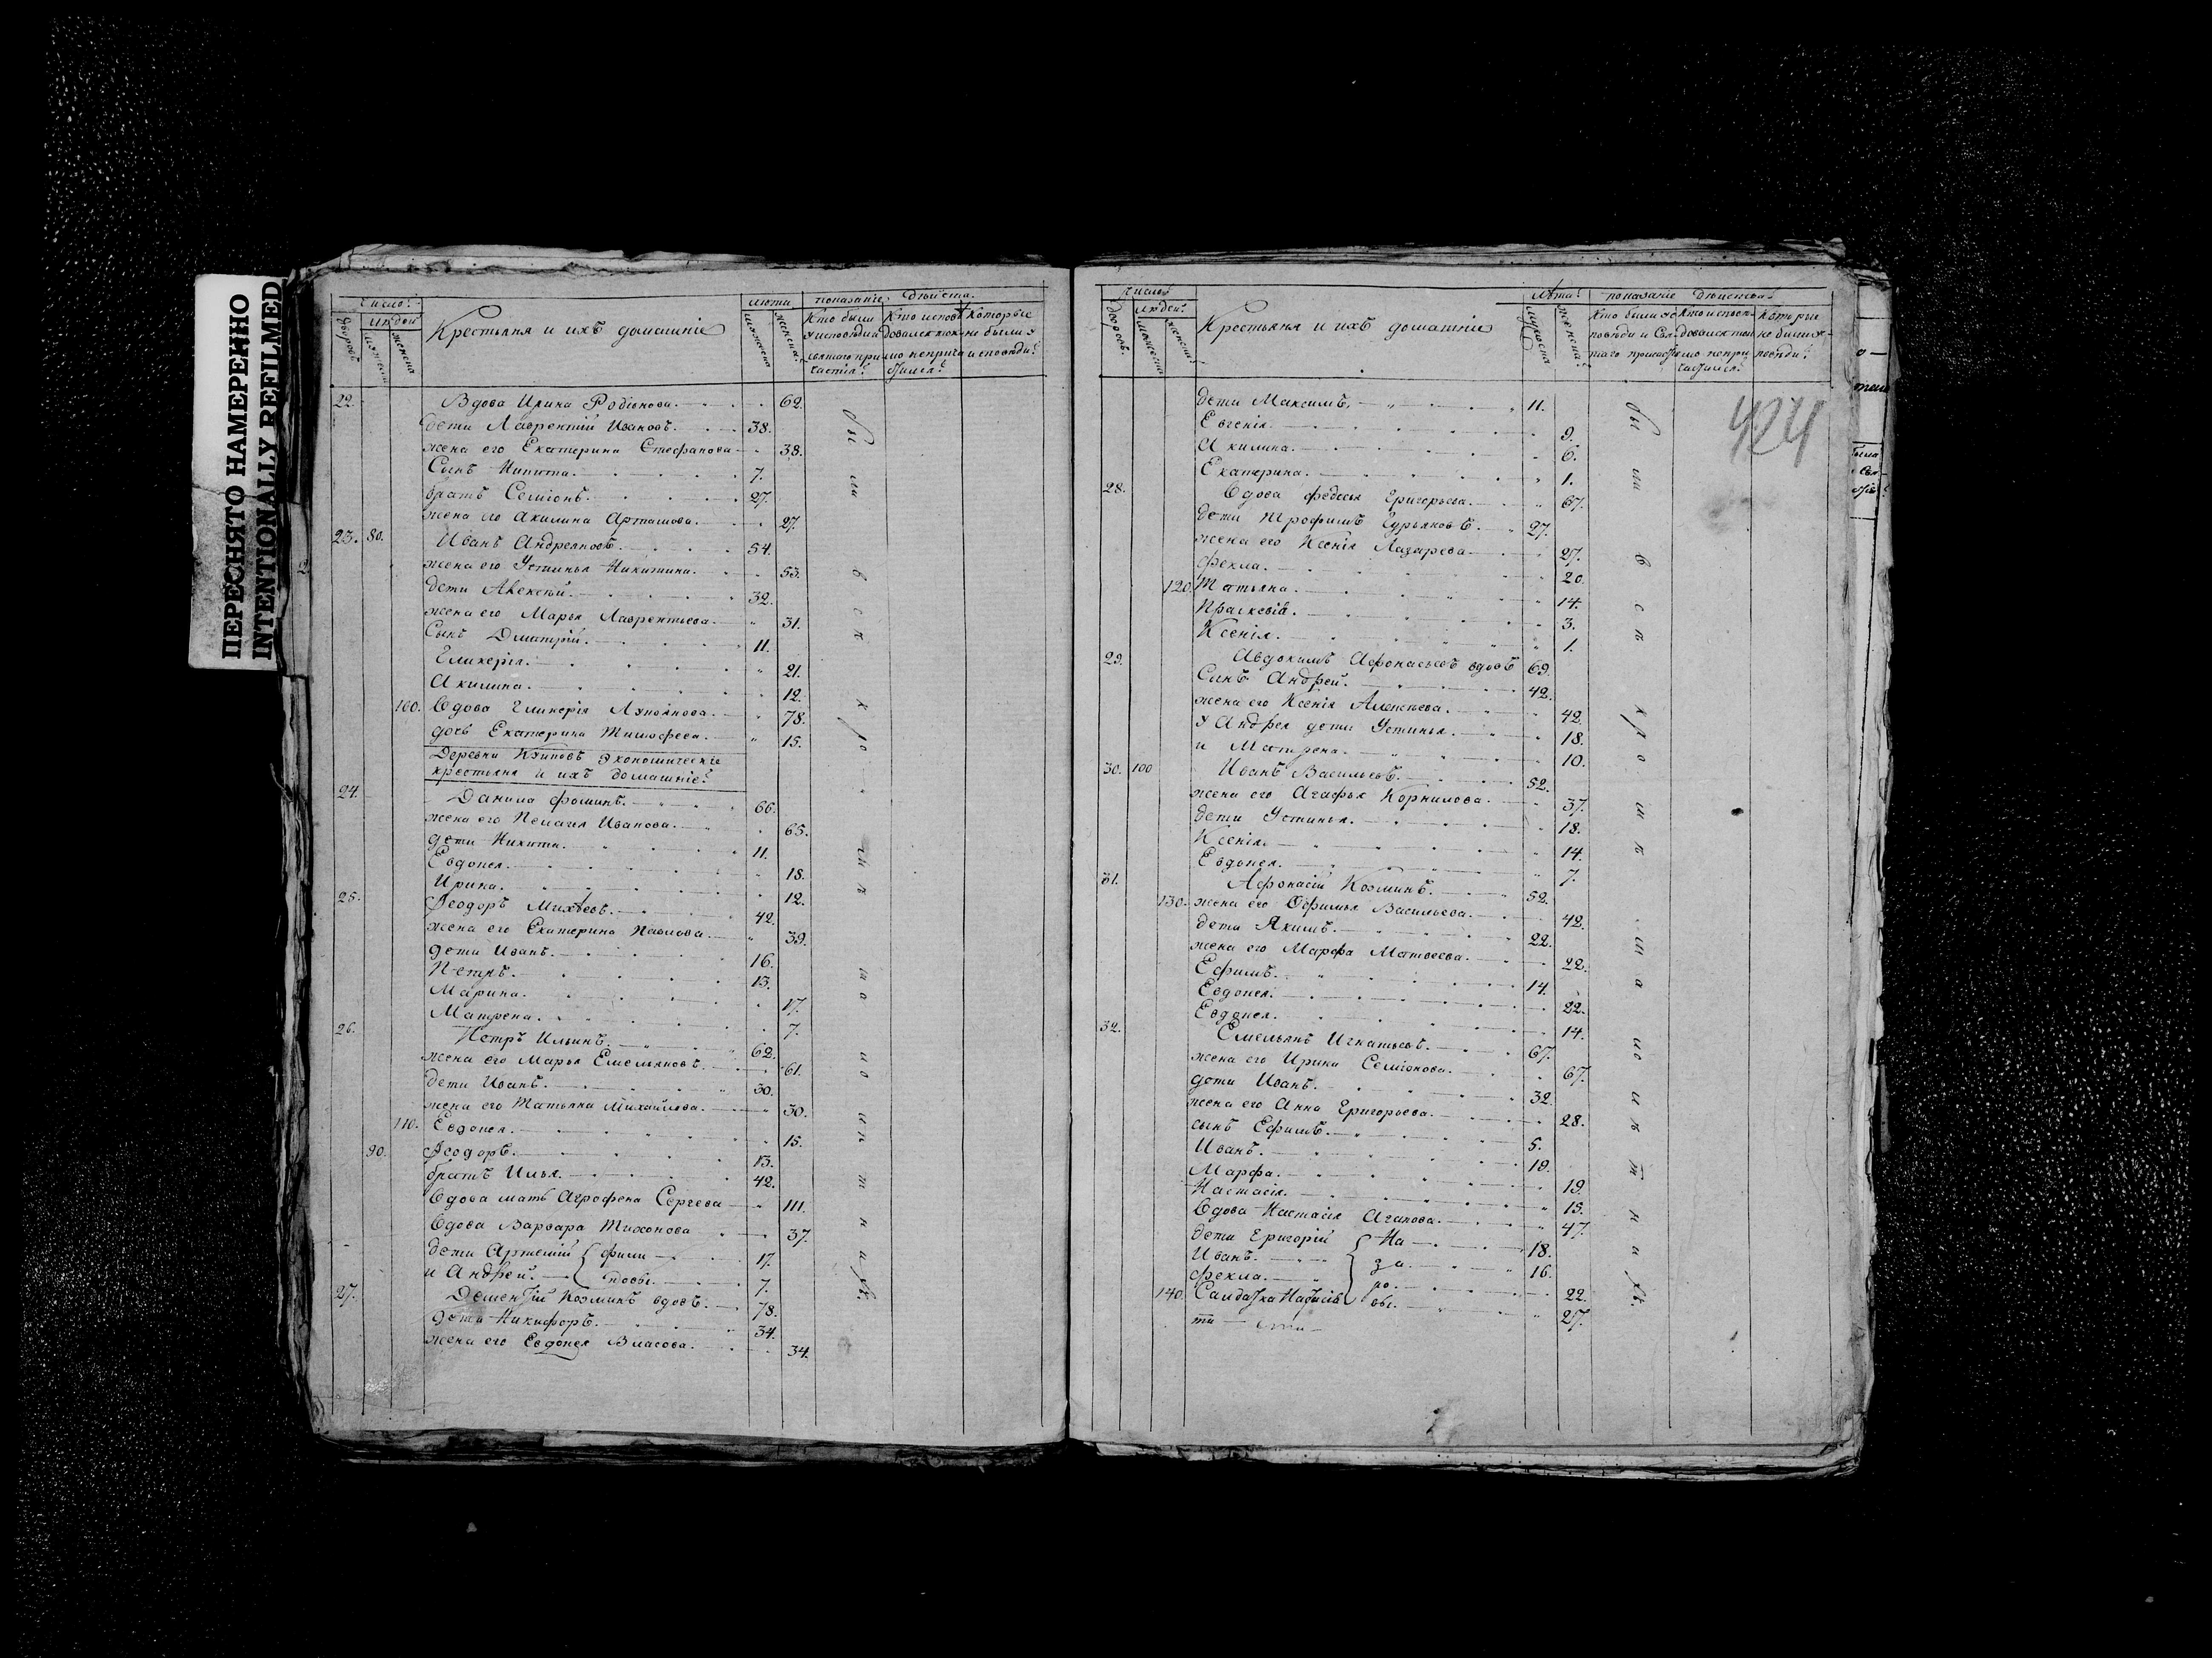 ПЕРЕСНЯТО НАМЕРЕННО
INTENTIONALLY REFILMED
число
людей
Крестьяня и ихъ домашніе
лѣта
показаніе дѣйства.
дворовъ
мужеска
женска
мужеска
женска
Кто были у исповѣди и святаго причастія
Кто исповѣдовался токмо не причастился
Которые не были у исповѣди
22. Вдова Ирина Родіонова. 62.
дети Лаврентій Ивановъ. 38.
жена его Екатерина Стефанова 38.
Сынъ Никита. 7.
братъ Семіонъ. 27.
жена его Акилина Артамова. 27.
23. 80. Иванъ Андреяновъ. 54.
жена его Устинья Никитина. 53.
дети Алексѣй. 32.
жена его Марья Лаврентьева. 31.
Сынъ Дмитрій. 11.
Гликерія. 21.
Акилина. 12.
100. Вдова Гликерія 78.
дочь Екатерина Тимофеева. 15.
Деревни Экономическіе
крестьяня и ихъ домашніе
24. Данила Фоминъ. 66.
жена его Пелагея Иванова. 65.
дети Никита. 11.
Евдокея. 18.
Ирина. 12.
25. Феодоръ Михѣевъ. 42.
жена его Екатерина Павлова. 39.
дети Иванъ. 16.
Петръ. 13.
Марина. 17.
Матрена. 7.
26. Петръ Ильинъ. 62.
жена его Марья Емельяновъ. 61.
дети Иванъ. 30.
жена его Татьяна Михайлова. 30.
110. Евдокея. 15.
90. Феодоръ. 13.
братъ Илья. 42.
Вдова мать Агрофена Сергеева 111.
Вдова Варвара Тихонова 37.
дети Артемій 17.
и Андрей. 7.
27. Дементій Козминъ вдовъ. 78.
дети Никифоръ. 34.
жена его Евдокея Власова. 34.
число
людей
дворовъ.
мужеска
женска
Крестьяня и ихъ домашніе
лѣта
мужеска
женска
показаніе дѣйства.
Кто были у исповѣди и Святаго причастія
Кто исповѣдовался токмо не причастился
Которые не были у исповѣди
424
дети Максимъ. 11.
Евгенія. 9.
Акилина. 6.
Екатерина. 1.
28. Вдова Федосья Григорьева. 67.
дети Трофимъ Гурьяновъ. 27.
жена его Ксенія Лазарева 27.
Фекла. 20.
120. Татьяна. 14.
Праскевія. 3.
Ксенія. 1.
29. Авдокимъ Афонасьевъ вдовъ 69.
Сынъ Андрей. 42.
жена его Ксенія Алексѣева. 42.
у Андрея дети Устинья. 18.
и Матрена. 10.
30. 100 Иванъ Васильевъ. 52.
жена его Агафья Корнилова. 37.
дети Устинья. 18.
Ксенія. 14.
Евдокея. 7.
31. Афонасій Козминъ. 52.
130. жена его Офимья Васильева. 42.
дети Якимъ. 22.
жена его Марфа Матвеева. 22.
Ефимъ. 14.
Евдокея. 22.
Евдокея. 14.
32. Емельянъ Игнатьевъ. 67.
жена его Ирина Семіонова. 67.
дети Иванъ. 32.
жена его Анна Григорьева. 28.
сынъ Ефимъ. 5.
Иванъ. 19.
Марфа. 19.
Настасія. 15.
Вдова Настасія Агапова. 47.
дети Григорій 18.
Иванъ. 16.
Фекла. 22.
140. Салдатка 27.